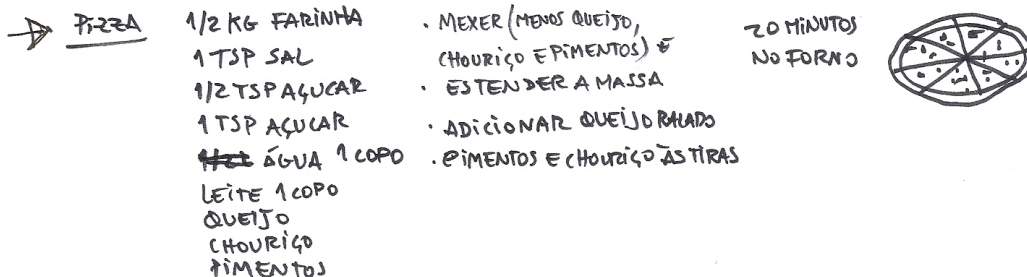 PIZZA
1/2 KG FARINHA
1 TSP SAL
1/2 TSP AÇUCAR
1 TSP AÇUCAR
ÁGUA 1 COPO
LEITE 1 COPO
QUEIJO
CHOURIÇO
PIMENTOS
· MEXER (MENOS QUEIJO,
CHOURIÇO E PIMENTOS) E
· ESTENDER A MASSA
· ADICIONAR QUEIJO RALADO
· PIMENTOS E CHOURIÇO ÀS TIRAS
20 MINUTOS
NO FORNO